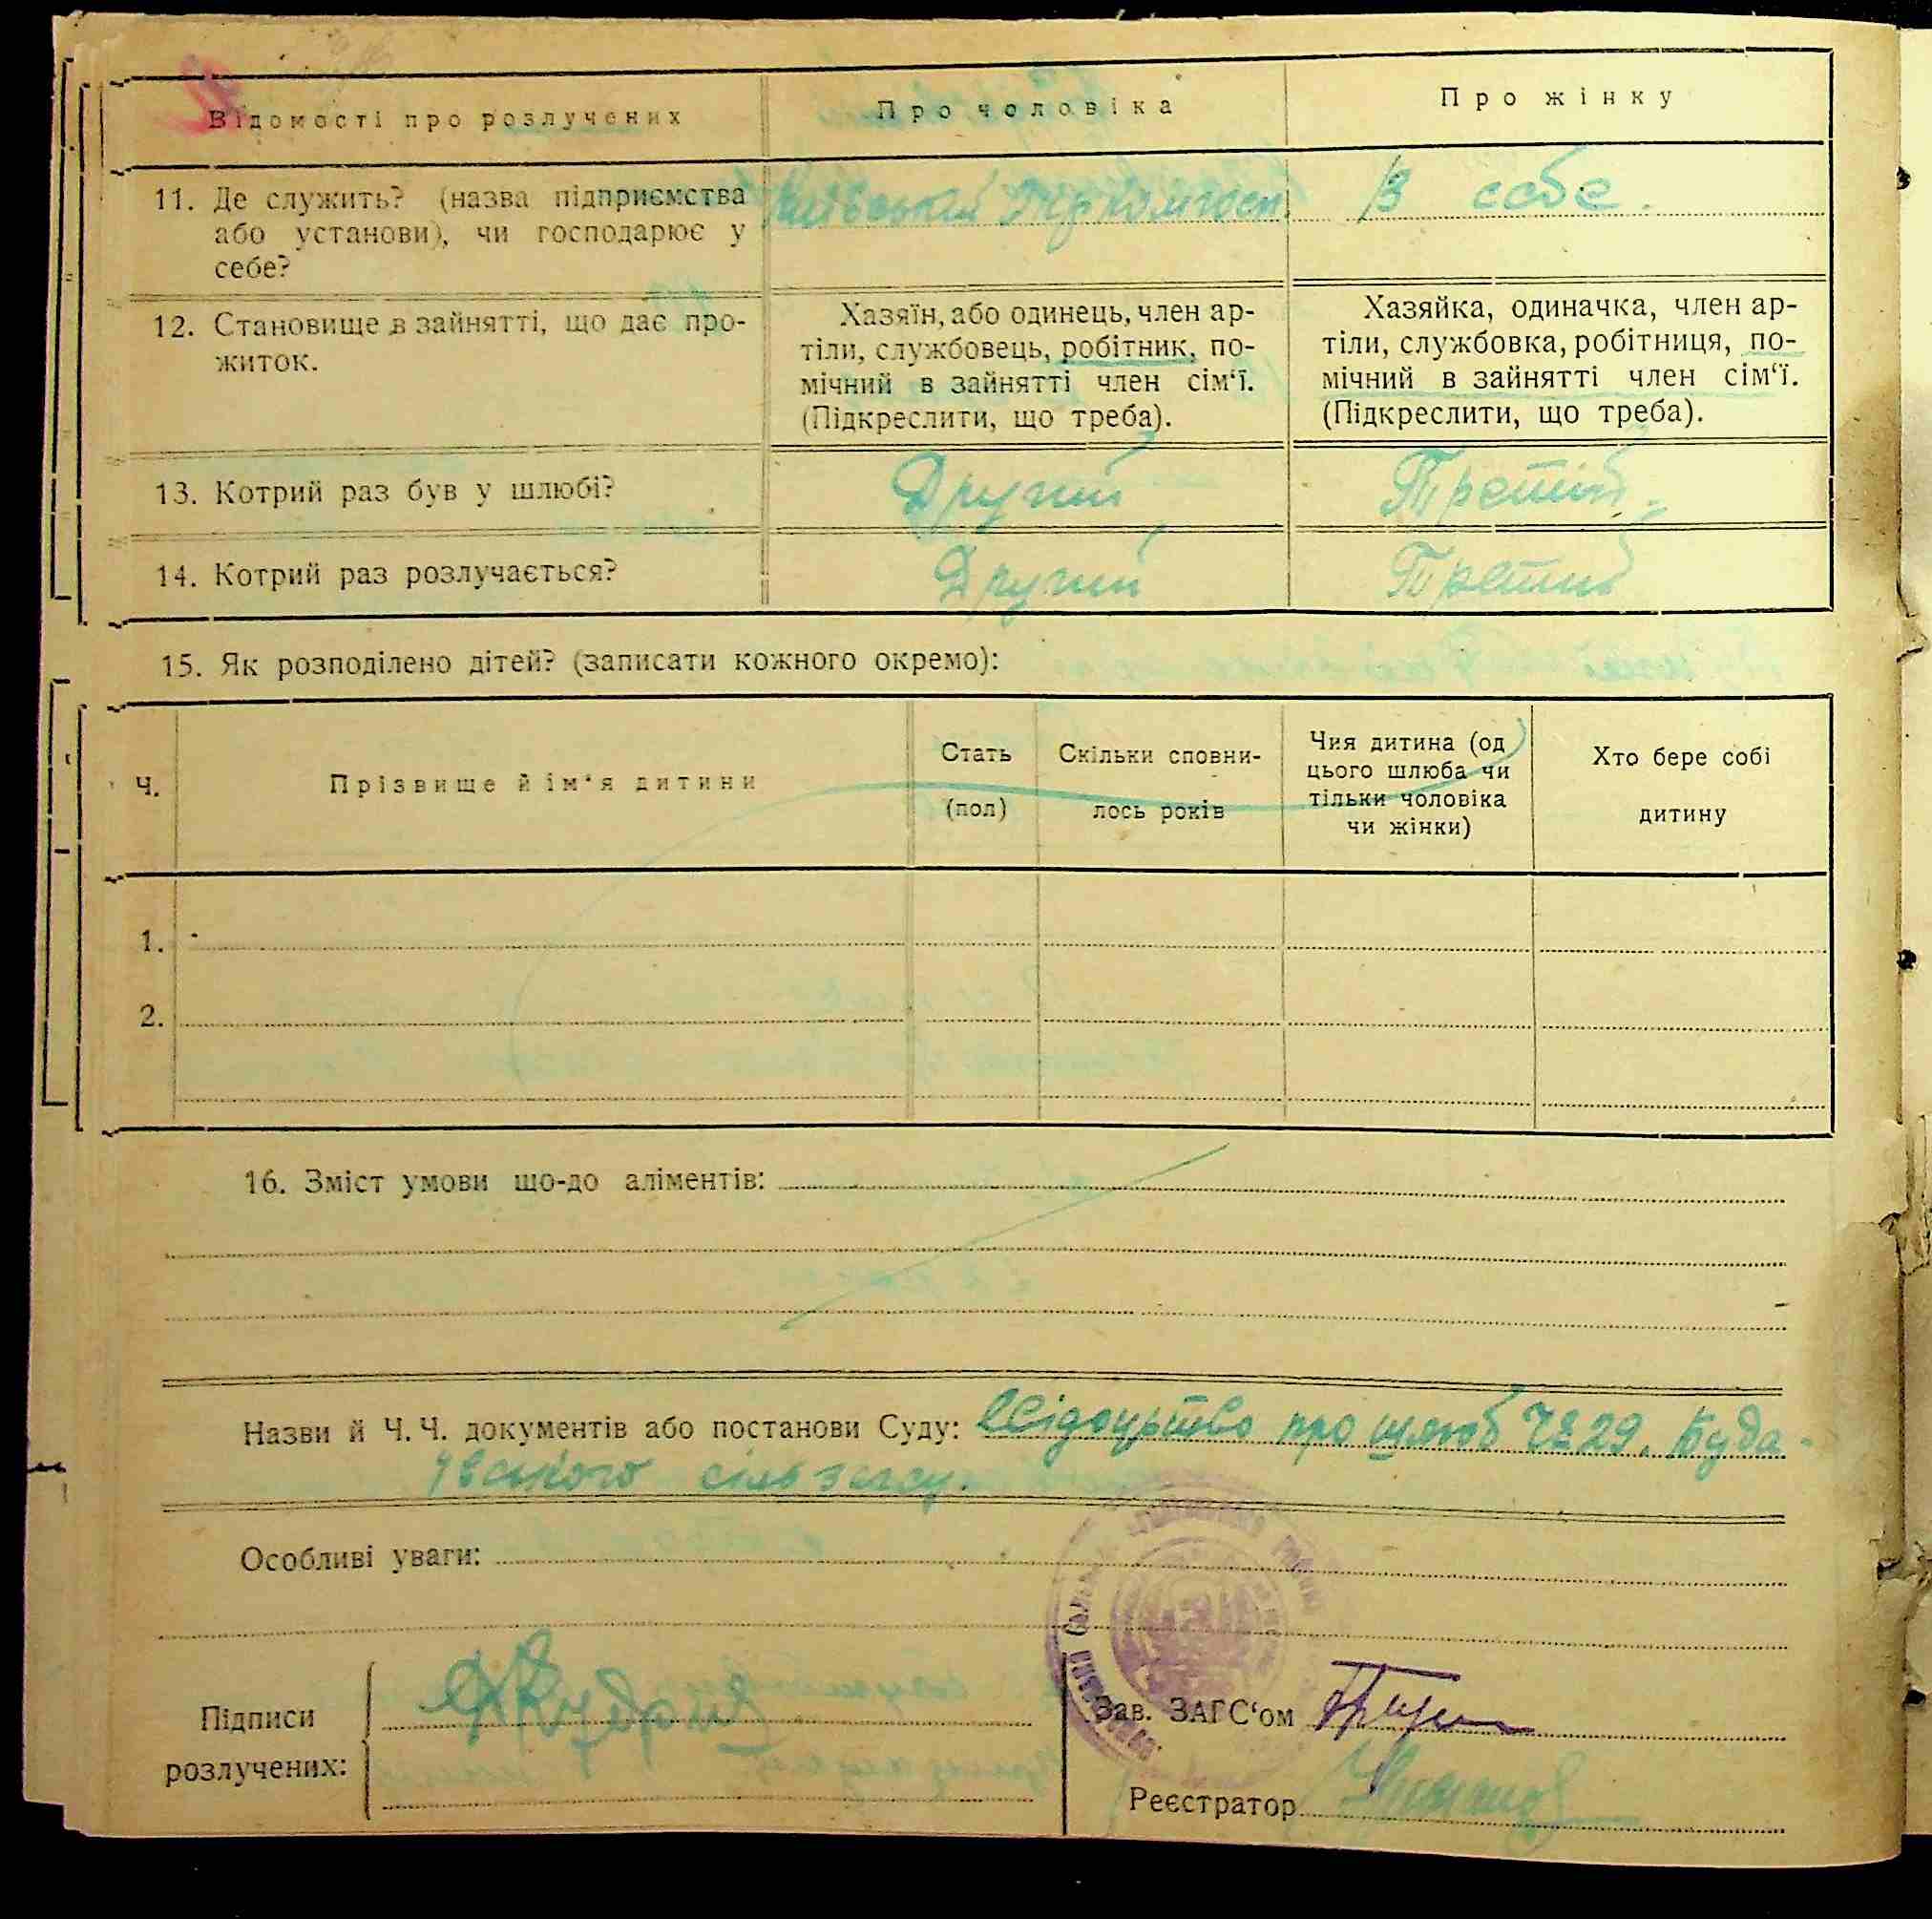 Відомості про розлучених
Про чоловіка
Про жінку
11. Де служить? (назва підприємства
або установи), чи господарює у
себе?
Київський
В себе.
12. Становище в зайнятті, що дає про-
житок.
Хазяїн, або одинець, член ар-
тіли, службовець, робітник, по-
мічний в зайнятті член сім‘ї.
(Підкреслити, що треба).
Хазяйка, одиначка, член ар-
тіли, службовка, робітниця, по-
мічний в зайнятті член сім‘ї.
(Підкреслити, що треба).
13. Котрий раз був у шлюбі?
Другий
Третій
14. Котрий раз розлучається?
Другий
Третій
15. Як розподілено дітей? (записати кожного окремо):
Ч.
Прізвище й ім‘я дитини
Стать
(пол)
Скільки сповни-
лось років
Чия дитина (од
цього шлюба чи
тільки чоловіка
чи жінки)
Хто бере собі
дитину
1.
2.
16. Зміст умови що-до аліментів:
Назви й Ч.Ч. документів або постанови Суду: Свідоцтво про шлюб Ч 29. Буда-
ївського сільзагсу.
Особливі уваги:
Підписи
розлучених:
Зав. ЗАГС‘ом
Реєстратор